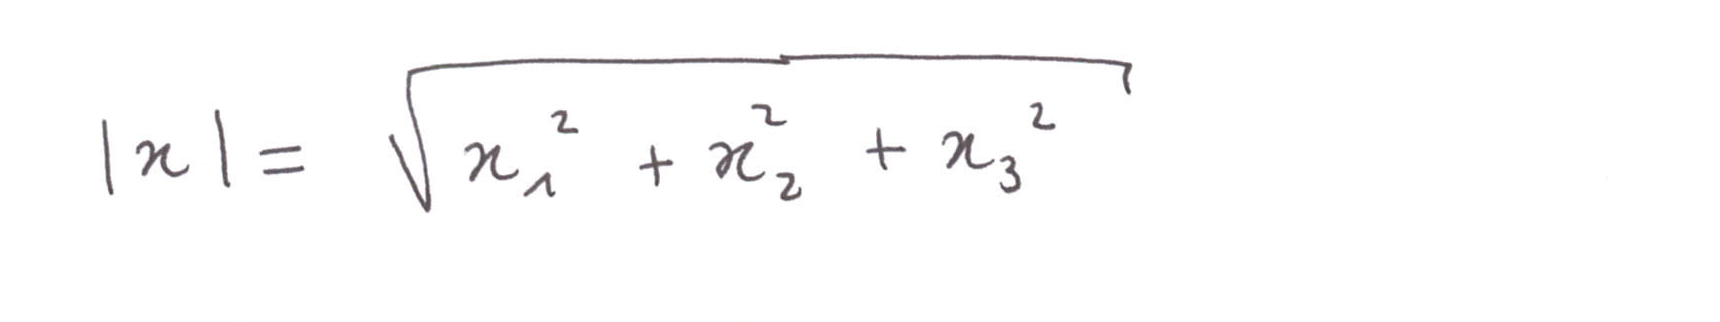 |x| = √(x₁² + x₂² + x₃²)